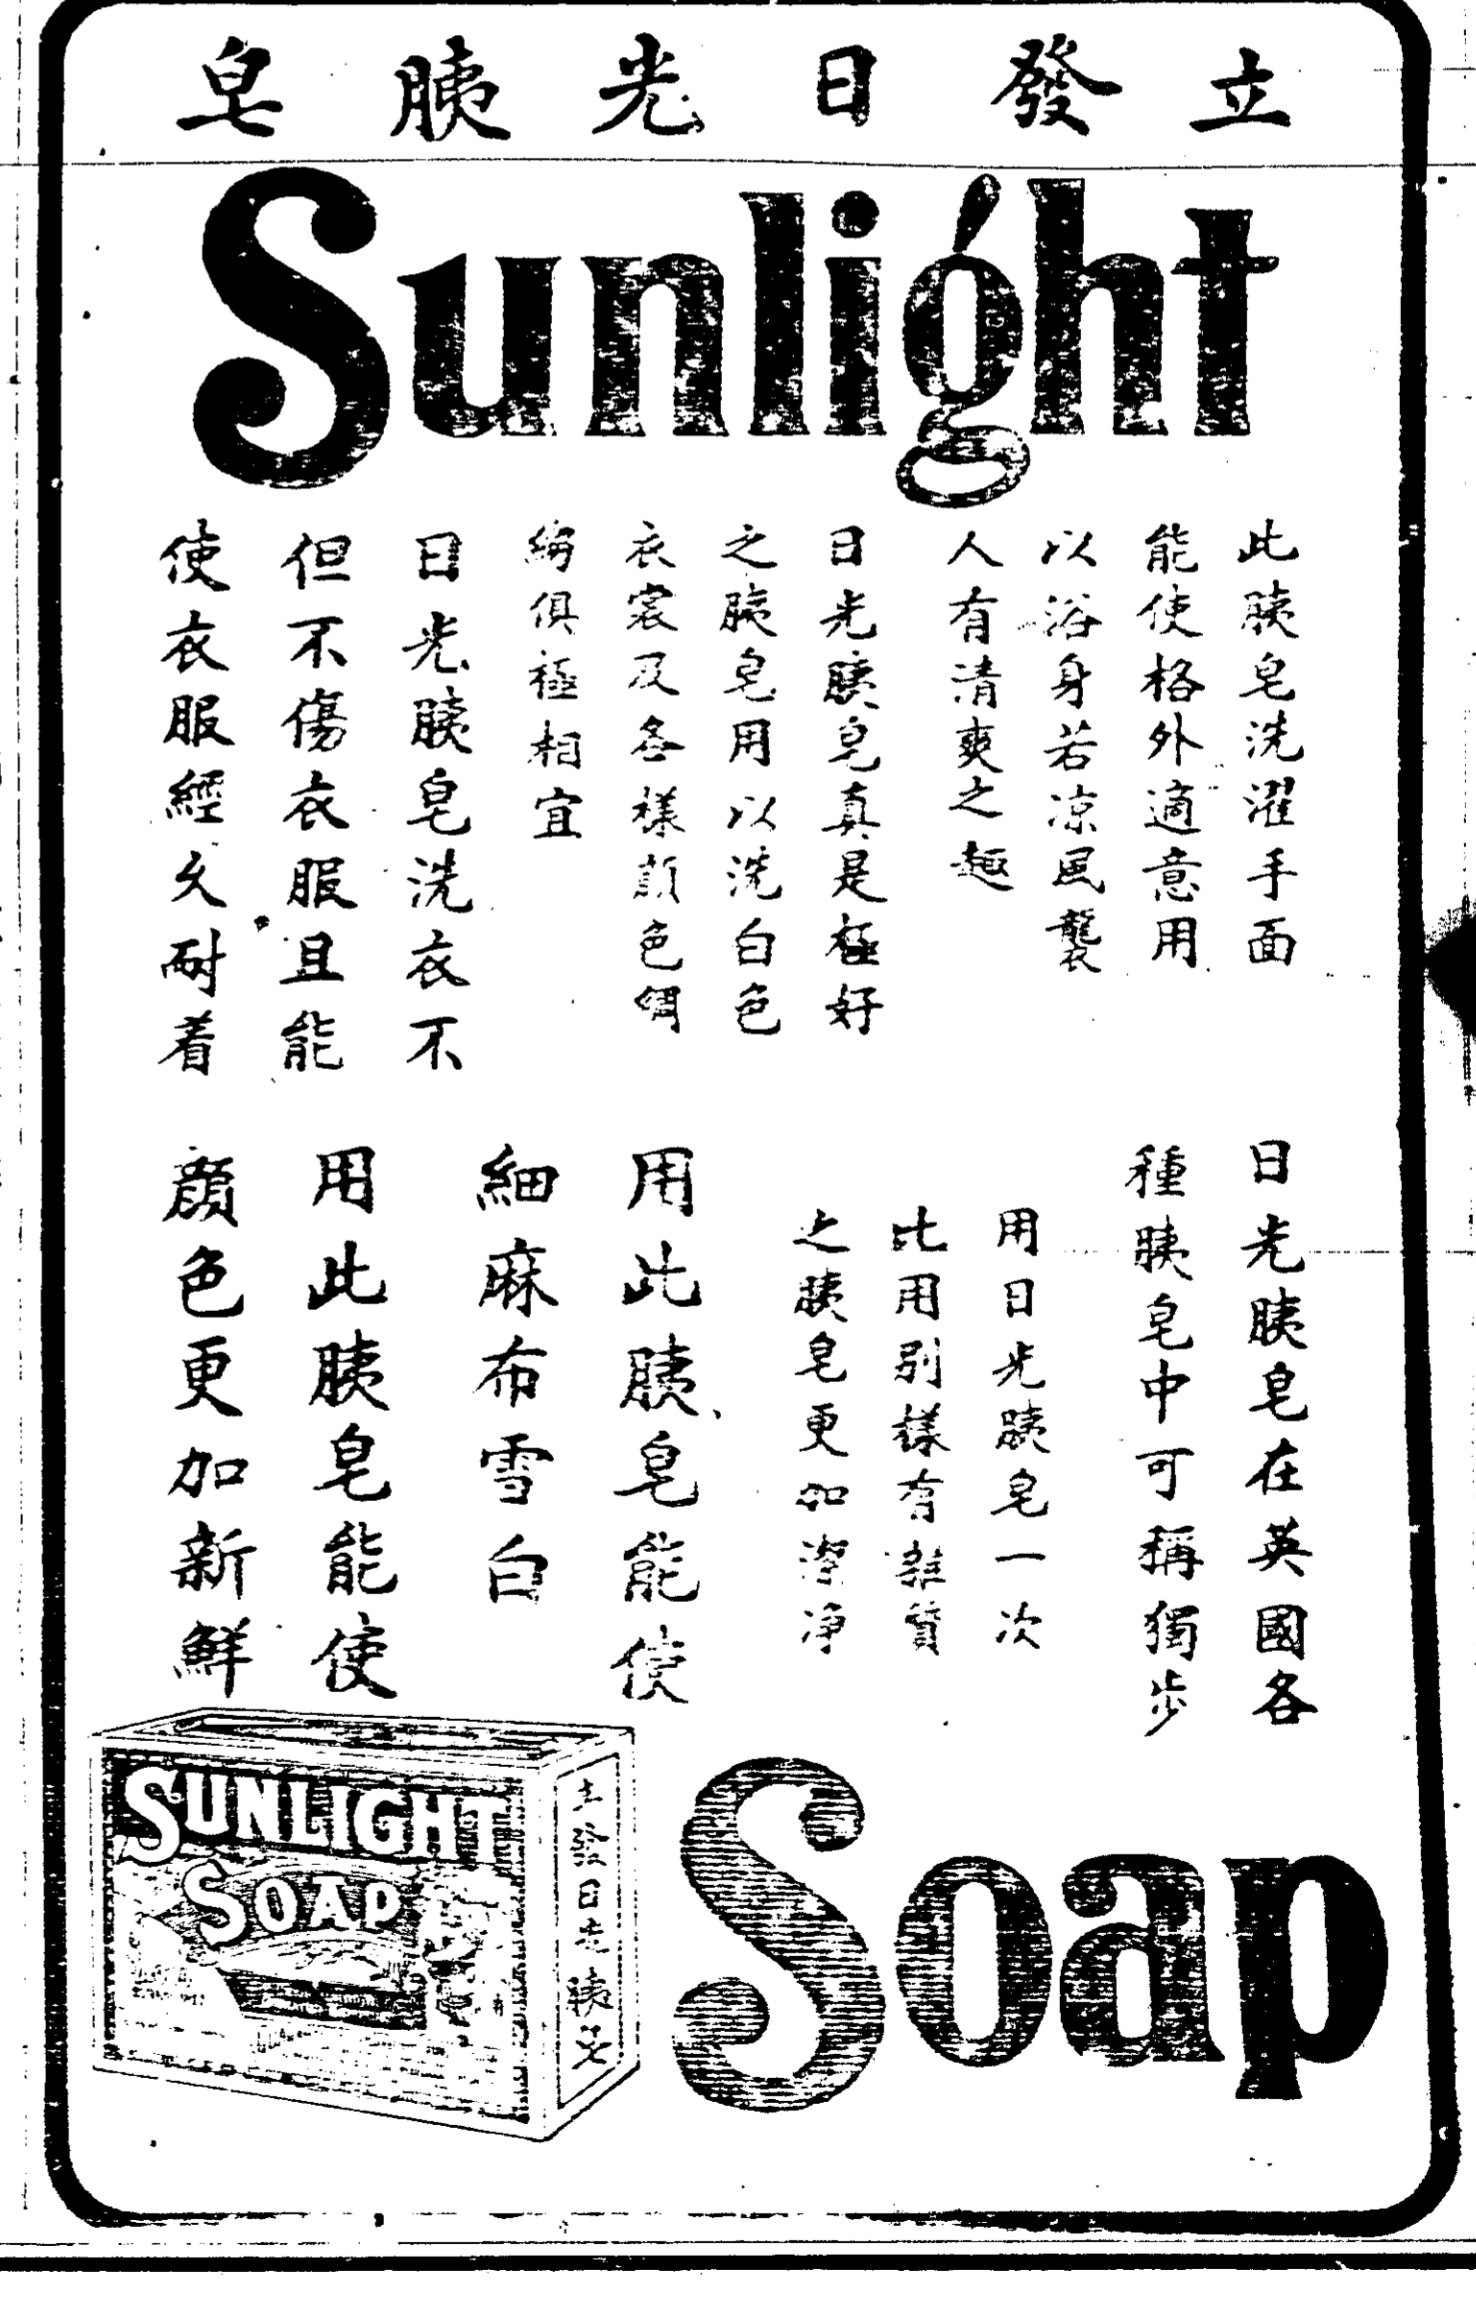 立發日光胰皂
Sunlight
此胰皂洗濯手面
能使格外適意用
以浴身若凉風襲
人有清爽之趣
日光胰皂真是極好
之胰皂用以洗白色
衣裳及各樣顏色綢
綿俱極相宜
日光胰皂洗衣不
但不傷衣服且能
使衣服經久耐着
日光胰皂在英國各
種胰皂中可稱獨步
用日光胰皂一次
比用別樣有雜質
之胰皂更加潔净
用此胰皂能使
細麻布雪白
用此胰皂能使
顏色更加新鮮
SUNLIGHT
SOAP
立發日光胰皂
Soap